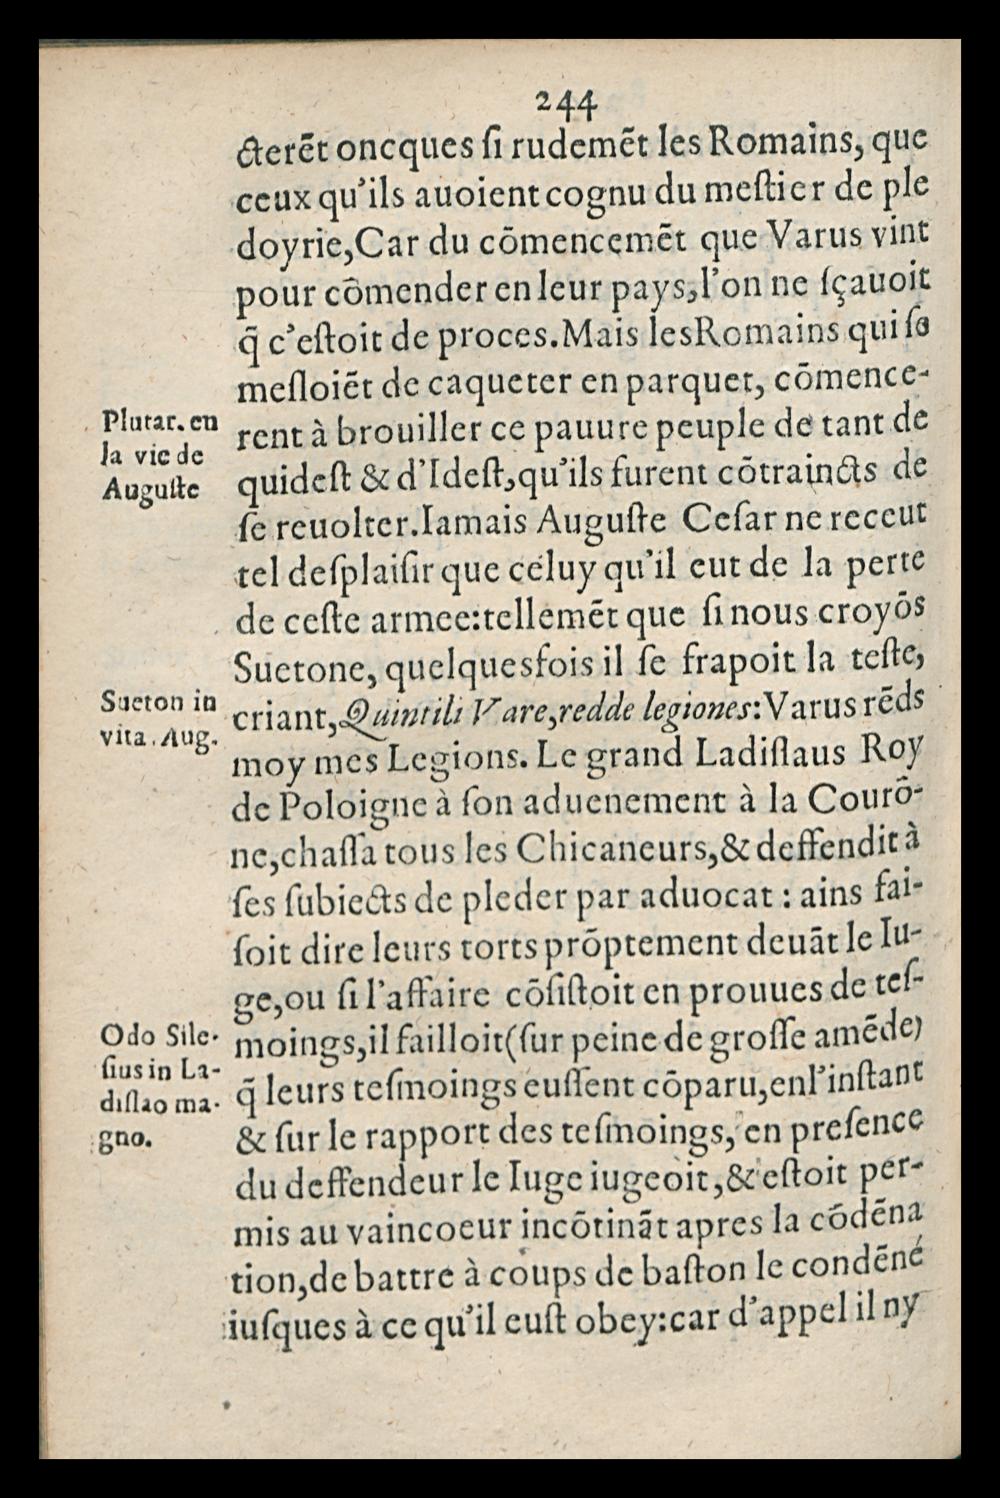 244
cterēt oncques ſi rudemēt les Romains, que
ceux qu'ils auoient cognu du meſtier de ple
doyrie,Car du cōmencemēt que Varus vint
pour cōmender en leur pays,l'on ne ſçauoit
q̃ c'eſtoit de proces.Mais lesRomains qui ſe
meſloiēt de caqueter en parquet, cōmence-
rent à brouiller ce pauure peuple de tant de
quideſt & d'Ideſt,qu'ils furent cōtraincts de
ſe reuolter.Iamais Auguſte Ceſar ne receut
tel deſplaiſir que celuy qu'il eut de la perte
de ceſte armee:tellemēt que ſi nous croyōs
Suetone, quelquesfois il ſe frapoit la teſte,
criant,Quintili Vare,redde legiones:Varus rēds
moy mes Legions. Le grand Ladiſlaus Roy
de Poloigne à ſon aduenement à la Courō-
ne,chaſſa tous les Chicaneurs,& deffendit à
ſes ſubiects de pleder par aduocat : ains fai-
ſoit dire leurs torts prōptement deuāt le Iu-
ge,ou ſi l'affaire cōſiſtoit en prouues de teſ-
moings,il failloit(ſur peine de groſſe amēde)
q̃ leurs teſmoings euſſent cōparu,enl'inſtant
& ſur le rapport des teſmoings, en preſence
du deffendeur le Iuge iugeoit,& eſtoit per-
mis au vaincoeur incōtināt apres la cōdēna
tion,de battre à coups de baſton le condēné
iuſques à ce qu'il euſt obey:car d'appel il ny
Plutar. en
la vie de
Auguſte
Sueton in
vita. Aug.
Odo Sile-
ſius in La-
diſlao ma-
gno.